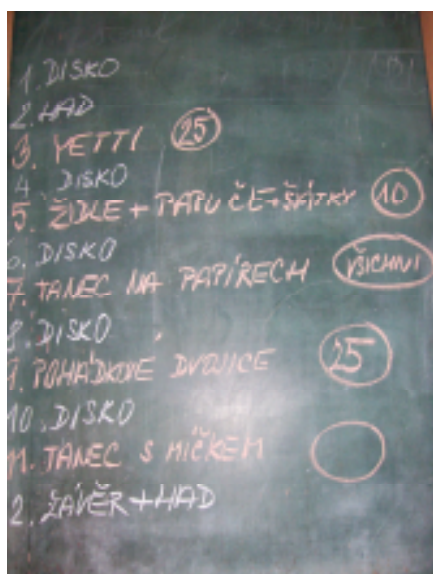 1. DISKO
2. HAD
3. YETTI 25
4. DISKO
5. ŽIDLE + PAPUČE + ŠÁTKY 10
6. DISKO
7. TANEC NA PAPÍRECH VŠICHNI
8. DISKO
9. POHÁDKOVÉ DVOJICE 25
10. DISKO
11. TANEC S MÍČKEM
2. ZÁVĚR + HAD